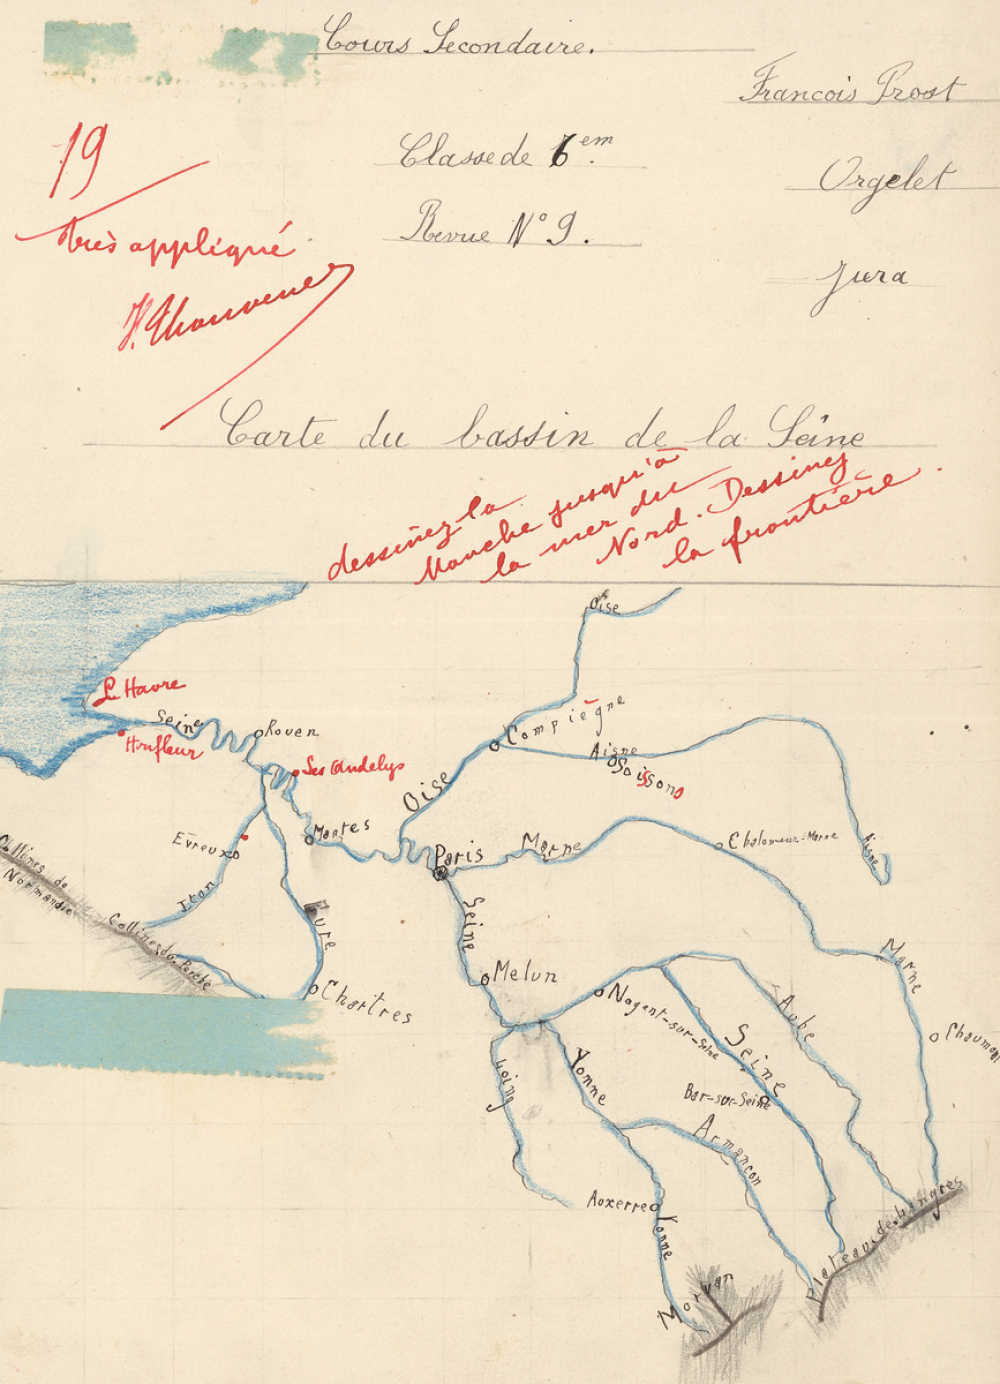 Cours Secondaire.
François Prost
Classe de 6em.
Orgelet
Revue N° 9.
Jura
19
très appliqué
Carte du bassin de la Seine
dessinez la
Manche jusqu'à
la mer du
Nord. Dessinez
la frontière.
Oise
Le Havre
Seine
Honfleur
Rouen
Compiègne
Aisne
Soissons
Les Andelys
Oise
Mantes
Paris
Marne
Chalons-sur-Marne
Aisne
Evreux
Iton
Collines de
Normandie
Collines du Perche
Eure
Chartres
Seine
Melun
Nogent-sur-Seine
Marne
Aube
Seine
Chaumont
Loing
Yonne
Bar-sur-Seine
Armançon
Auxerre
Yonne
Plateau de Langres
Morvan